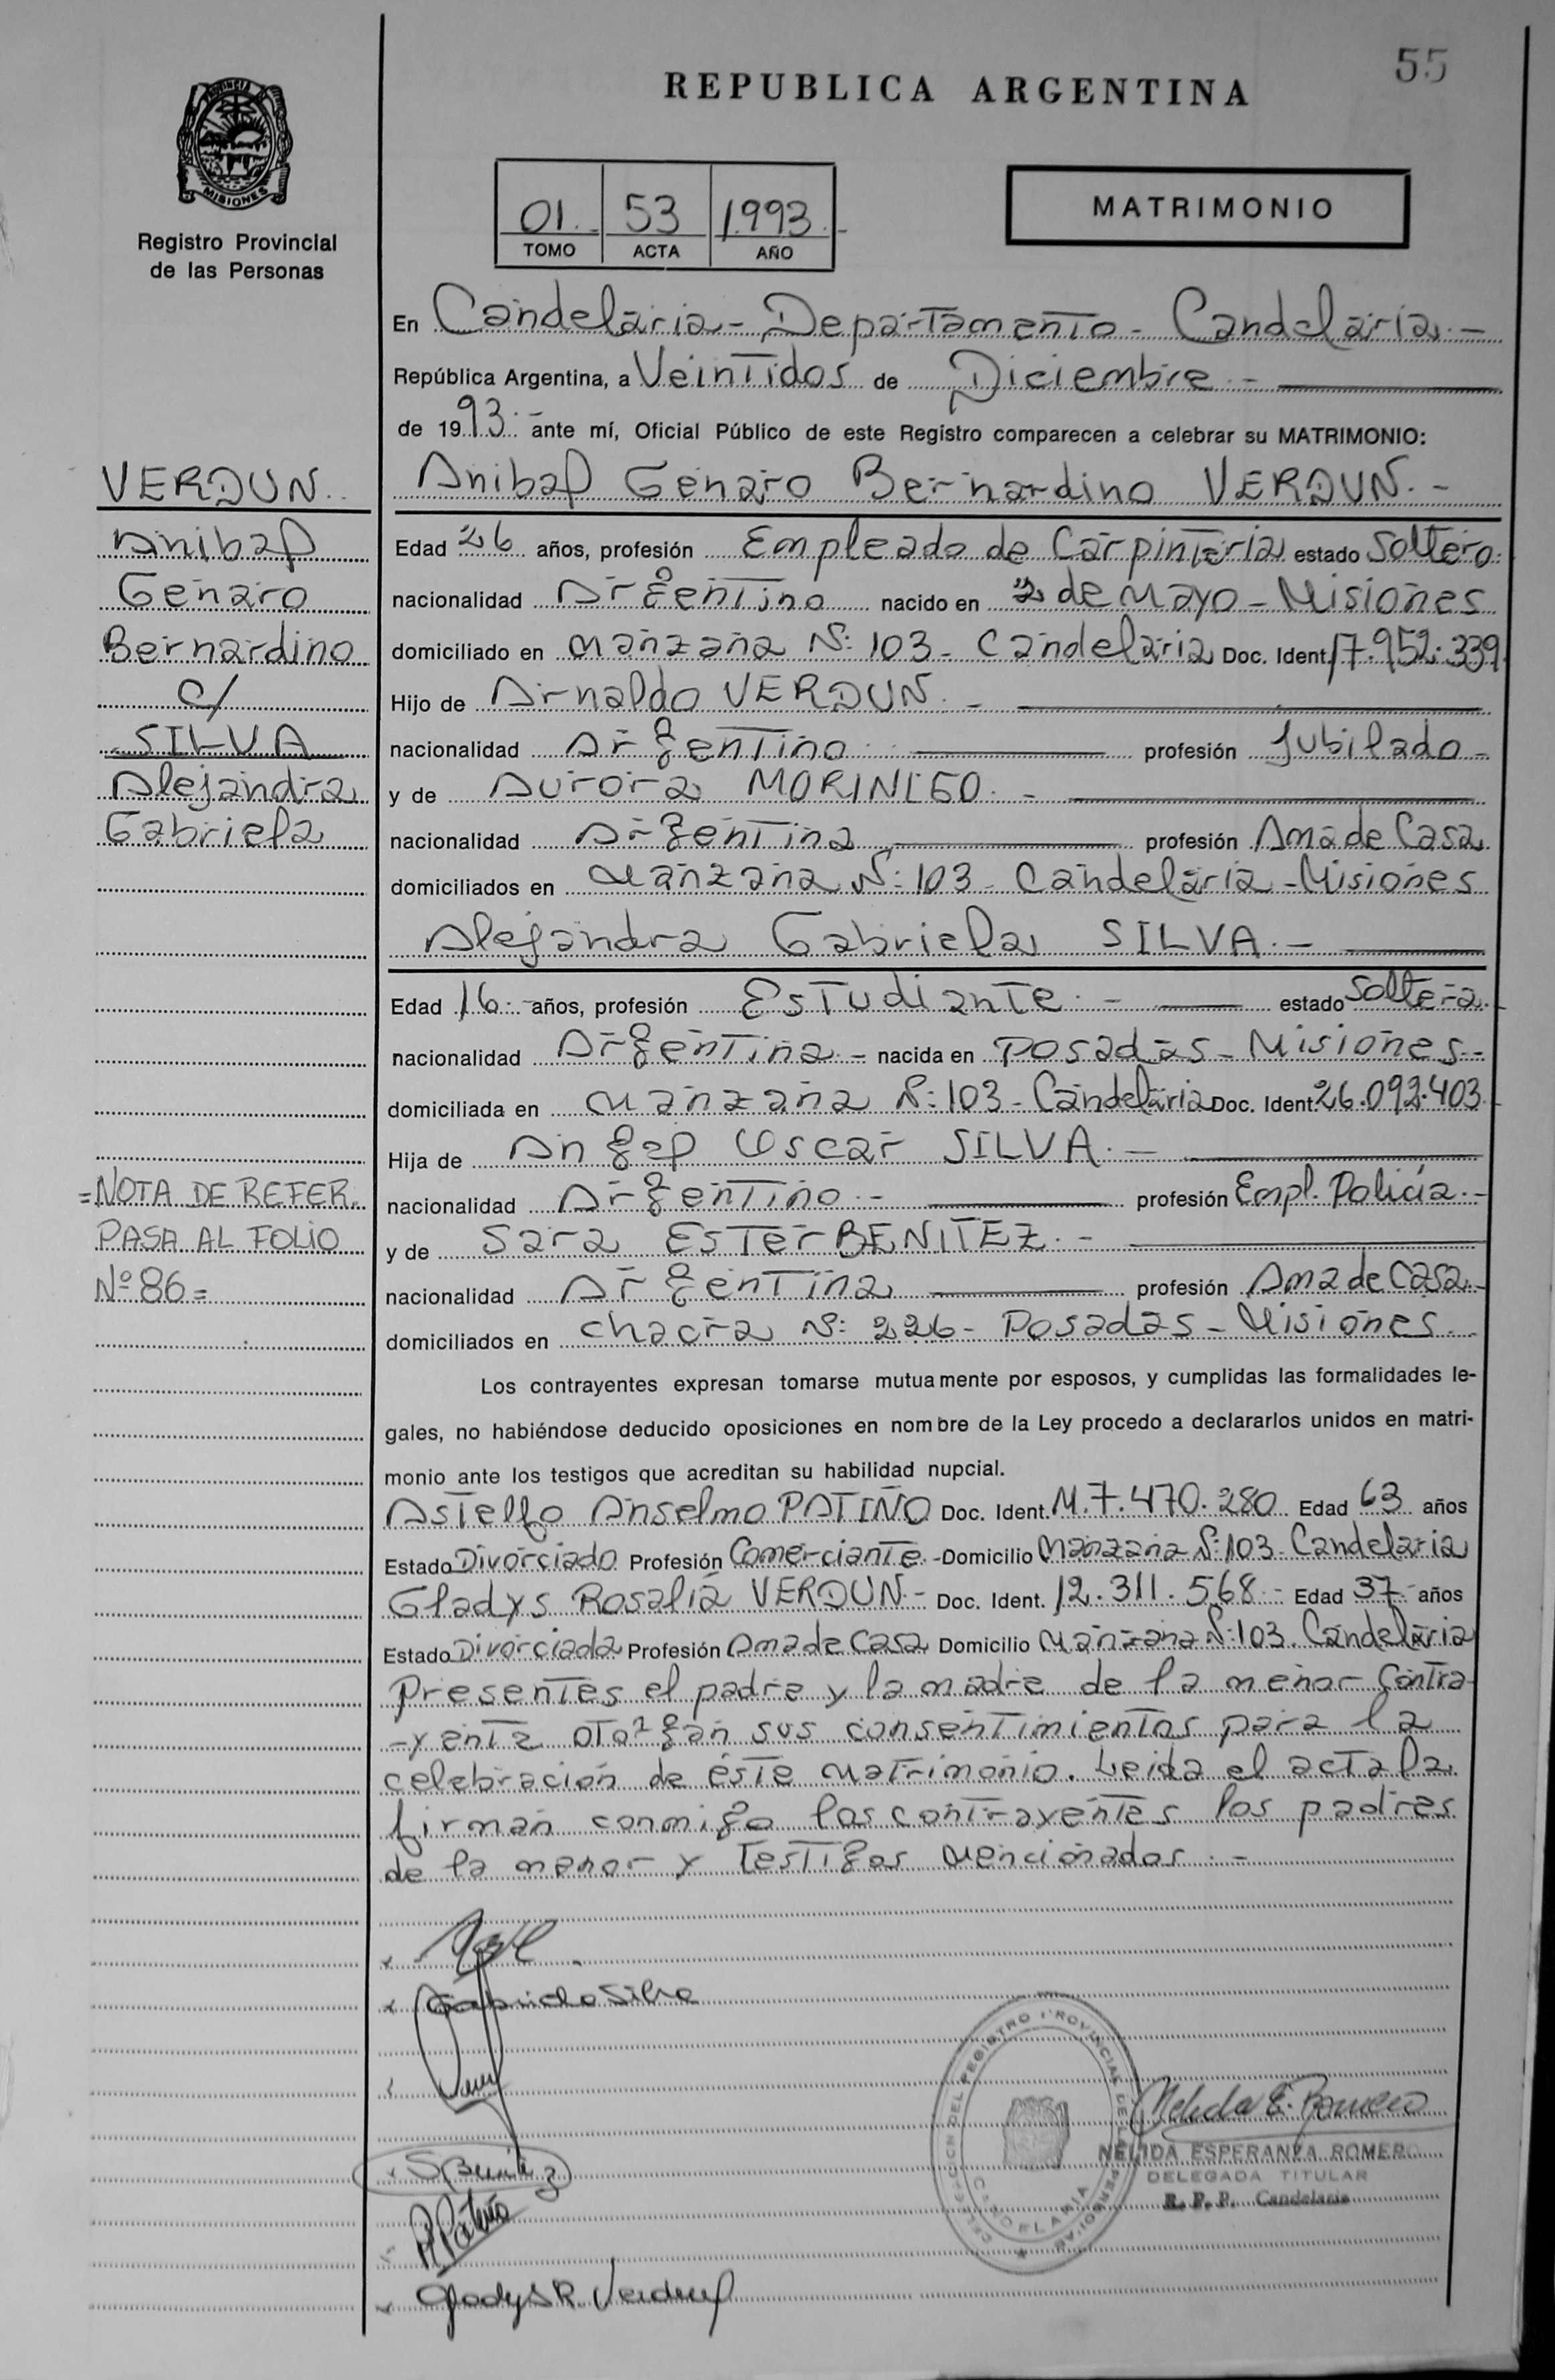 55
REPUBLICA ARGENTINA
PROVINCIA DE
MISIONES
Registro Provincial
de las Personas
01.- 53 1993.-
TOMO ACTA AÑO
MATRIMONIO
En Candelaria - Departamento - Candelaria.-
República Argentina, a Veintidos de Diciembre.-
de 1993.- ante mí, Oficial Público de este Registro comparecen a celebrar su MATRIMONIO:
VERDUN.
Anibal
Genaro
Bernardino
c/
SILVA
Alejandra
Gabriela
Anibal Genaro Bernardino VERDUN.-
Edad 26 años, profesión Empleado de Carpinteria estado Soltero.
nacionalidad Argentino nacido en 2 de Mayo - Misiones
domiciliado en Manzana Nº: 103 - Candelaria Doc. Ident. 17.952.339
Hijo de Arnaldo VERDUN.-
nacionalidad Argentino profesión Jubilado -
y de Aurora MORINIGO.-
nacionalidad Argentina profesión Ama de Casa
domiciliados en Manzana Nº: 103 - Candelaria - Misiones
Alejandra Gabriela SILVA.-
Edad 16.- años, profesión Estudiante.- estado Soltera.
nacionalidad Argentina.- nacida en Posadas - Misiones.-
domiciliada en Manzana Nº: 103 - Candelaria Doc. Ident. 26.092.403
Hija de Angel Oscar SILVA.-
nacionalidad Argentino.- profesión Empl. Policía.-
y de Sara Ester BENITEZ.-
nacionalidad Argentina profesión Ama de Casa.-
domiciliados en Chacra Nº: 226 - Posadas - Misiones.
=NOTA DE REFER.
PASA AL FOLIO
Nº 86=
Los contrayentes expresan tomarse mutuamente por esposos, y cumplidas las formalidades le-
gales, no habiéndose deducido oposiciones en nombre de la Ley procedo a declararlos unidos en matri-
monio ante los testigos que acreditan su habilidad nupcial.
Astelfo Anselmo PATIÑO Doc. Ident. M.7.470.280 Edad 63 años
Estado Divorciado Profesión Comerciante.- Domicilio Manzana Nº: 103 - Candelaria
Gladys Rosalía VERDUN.- Doc. Ident. 12.311.568.- Edad 37.- años
Estado Divorciada Profesión Ama de Casa Domicilio Manzana Nº: 103. Candelaria
Presentes el padre y la madre de la menor Contra-
-yente otorgan sus consentimientos para la
celebración de éste Matrimonio. Leida el acta la
firman conmigo los contrayentes los padres
de la menor y Testigos Mencionados.-
Gabriela Silva
S Benitez
A Patiño
Gladys R. Verdun
Nelida E. Romero
NELIDA ESPERANZA ROMERO
DELEGADA TITULAR
R. P. P. Candelaria
REGISTRO PROVINCIAL DE LAS PERSONAS
CANDELARIA